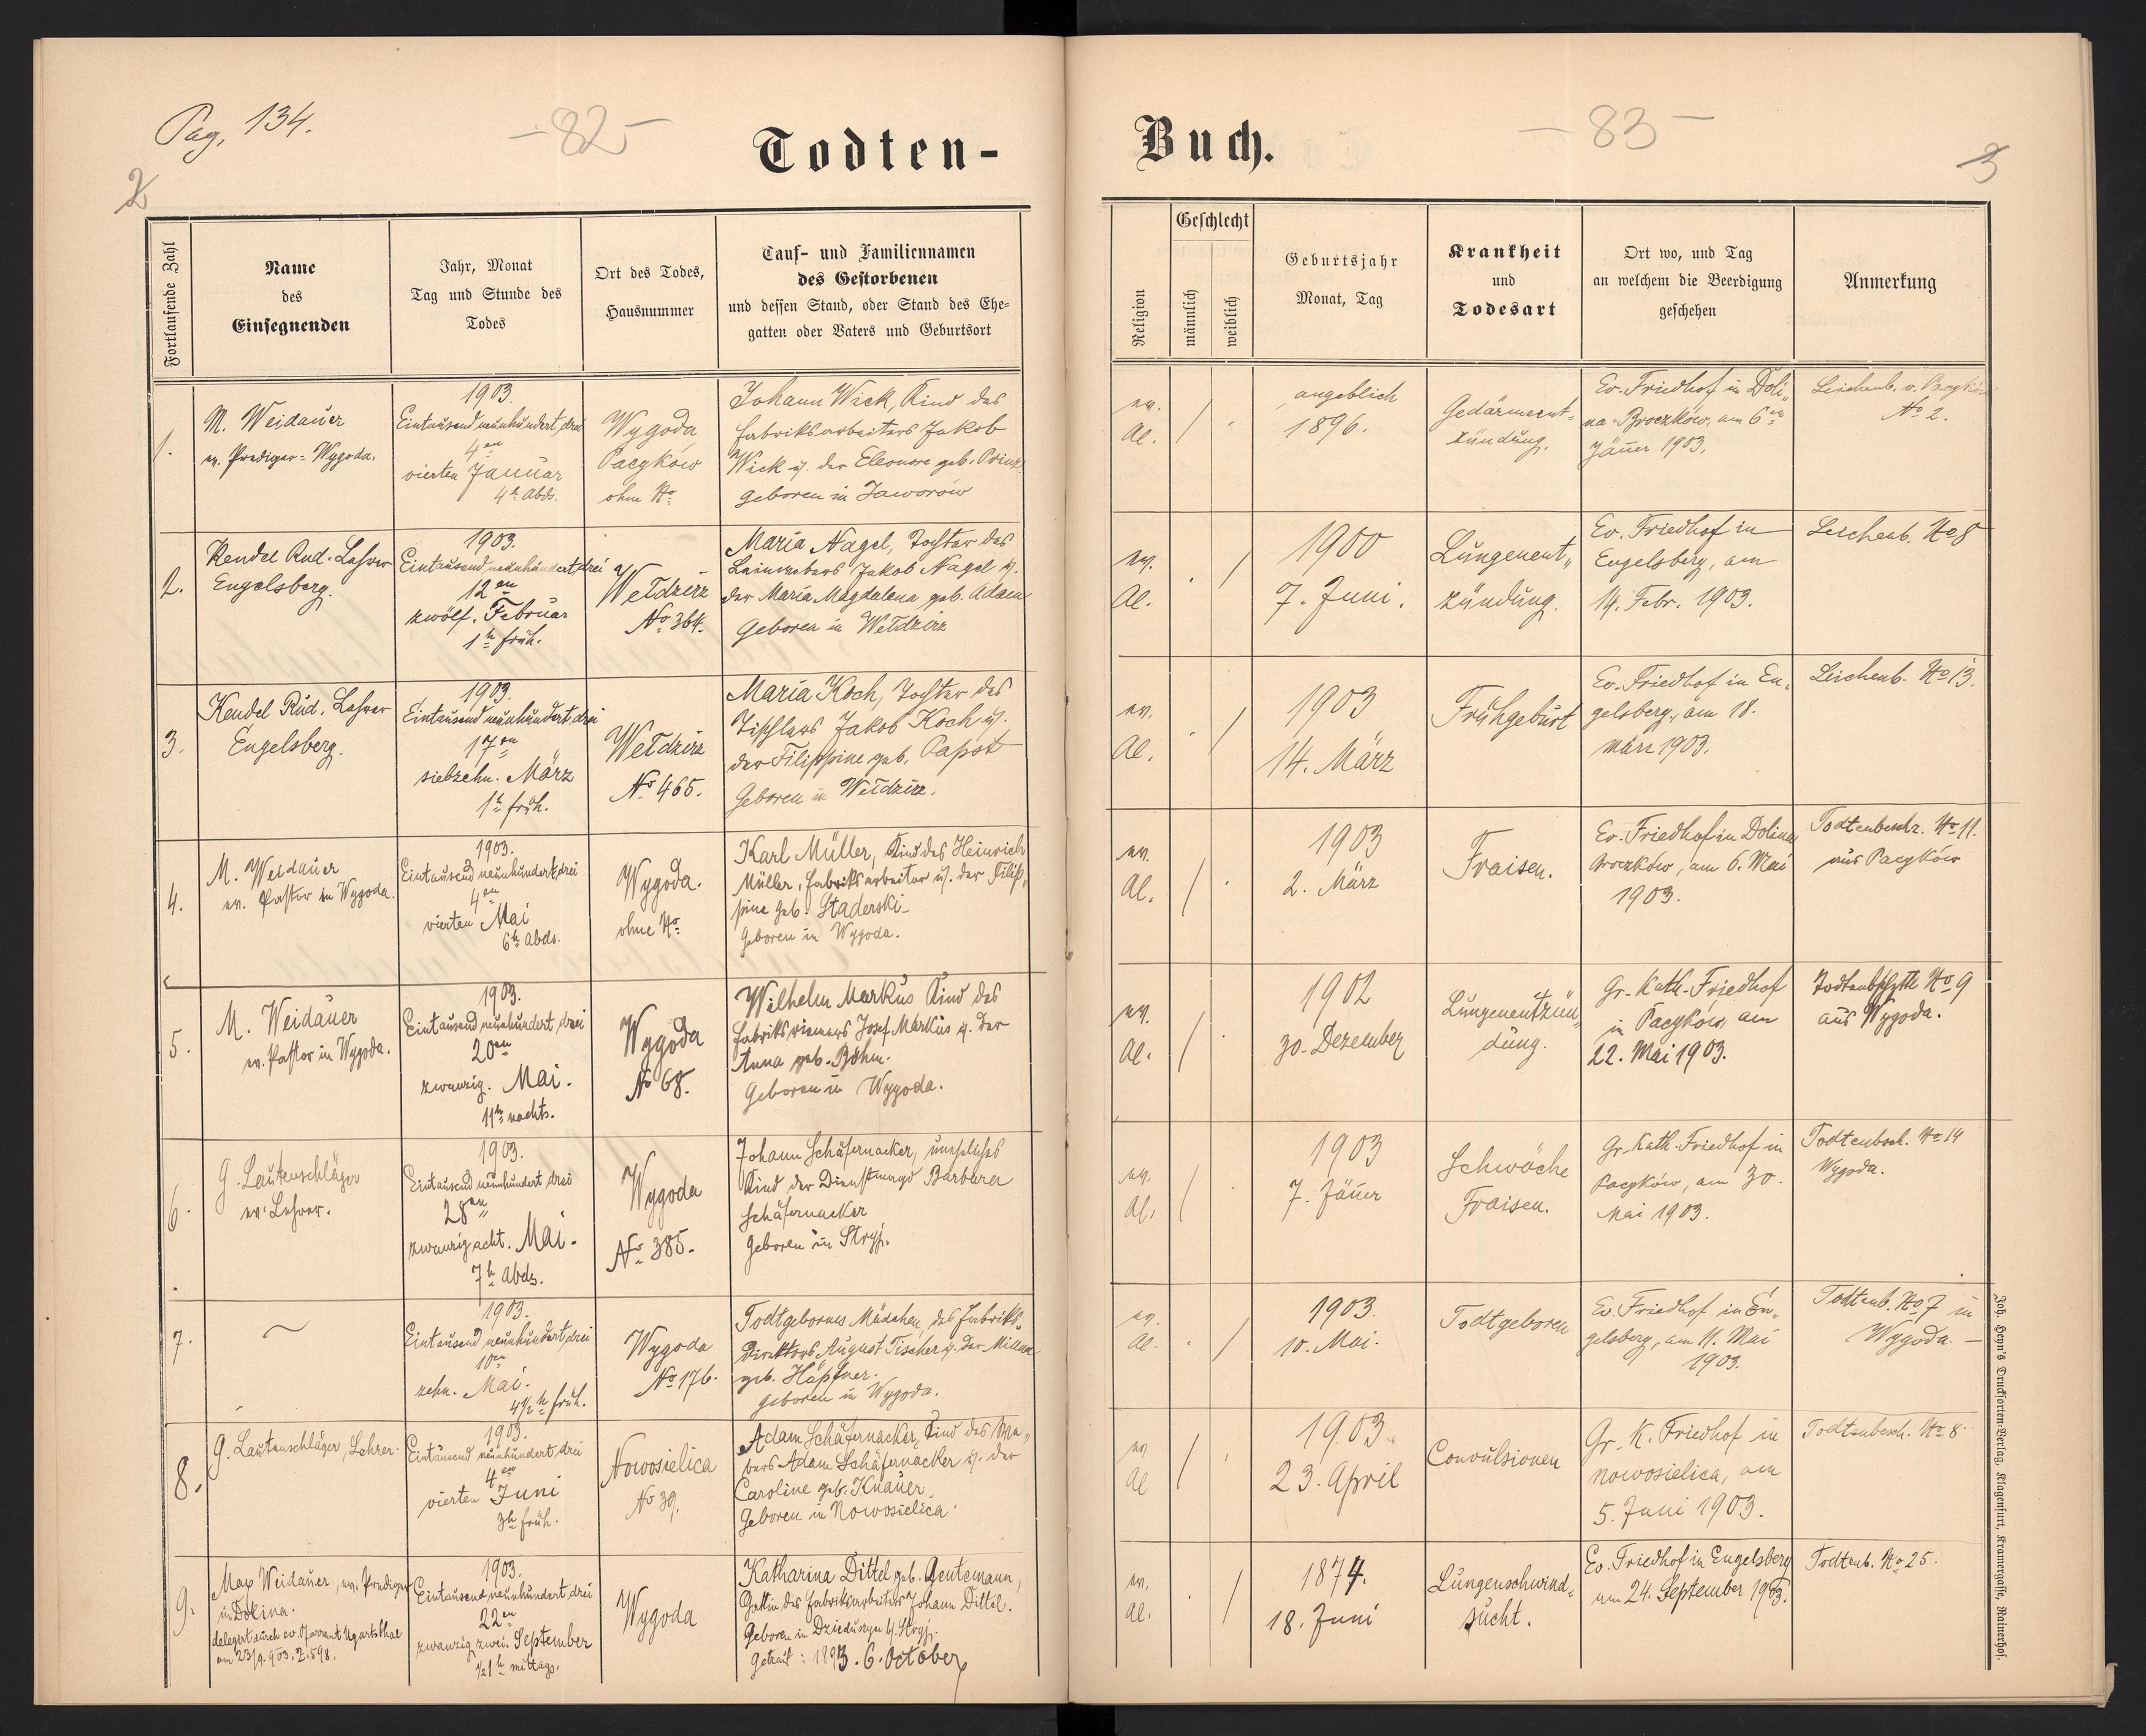 Pag. 134.
- 82 -
2
Todten-
Fortlaufende Zahl
Name
des
Einsegnenden
Jahr, Monat
Tag und Stunde des
Todes
Ort des Todes,
Hausnummer
Tauf- und Familiennamen
des Gestorbenen
und dessen Stand, oder Stand des Ehe-
gatten oder Vaters und Geburtsort
1.
M. Weidauer
ev. Prediger-Wygoda.
1903.
Eintausend neunhundert drei
4en
vierten Januar
4h Abds.
Wygoda
Pacyków
ohne No
Johann Wick, Kind des
Fabriksarbeiters Jakob
Wick u. der Eleonore geb. Prinz.
geboren in Jaworow
2.
Kendel Rud. Lehrer
Engelsberg.
1903.
Eintausend neunhundert drei
12en
zwölf. Februar
1h früh.
Wełdzirz
No 364.
Maria Nagel, Tochter des
Leinwebers Jakob Nagel u.
der Maria Magdalena geb. Adam
Geboren in Wełdzirz
3.
Kendel Rud. Lehrer
Engelsberg.
1903.
Eintausend neunhundert drei
17en
siebzehn. März
1h früh.
Wełdzirz
No 465.
Maria Koch, Tochter des
Tischlers Jakob Koch u.
der Filippine geb. Papst
Geboren in Wełdzirz.
4.
M. Weidauer
ev. Pastor in Wygoda.
1903.
Eintausend neunhundert drei
4en
vierten Mai
6h Abds.
Wygoda.
ohne No
Karl Müller, Kind des Heinrich
Müller, Fabriksarbeiter u. der Filip„
pine geb. Staderski
Geboren in Wygoda.
5.
M. Weidauer
ev. Pastor in Wygoda.
1903.
Eintausend neunhundert drei
20en
zwanzig. Mai.
11h nachts.
Wygoda
No 68.
Wilhelm Markus Kind des
Fabriksriemers Josef Markus u. der
Anna geb. Böhm.
Geboren in Wygoda.
6.
G. Lautenschläger
ev. Lehrer.
1903.
Eintausend neunhundert drei
28en
zwanzig acht. Mai.
7h Abds.
Wygoda
No 385.
Johann Schäfernacker, uneheliches
Kind der Dienstmagd Barbara
Schäfernacker
Geboren in Stryj.
7.
1903.
Eintausend neunhundert drei
10en
zehn. Mai.
4 1/2 h früh.
Wygoda
No 176.
Todtgebornes Mädchen, des Fabriks„
Direktors August Tischer u. der Minna
geb. Häpfner.
geboren in Wygoda.
8.
G. Lautenschläger, Lehrer.
1903.
Eintausend neunhundert drei
4en
vierten Juni
3h früh.
Nowosielica
No 39.
Adam Schäfernacker, Kind des We„
bers Adam Schäfernacker u. der
Caroline geb. Knauer.
Geboren in Nowosielica.
9.
Max Weidauer, ev. Prediger
in Dolina.
delegirt durch ev. Pfarramt Ugartsthal
am 23/9. 903. Z. 598.
1903.
Eintausend neunhundert drei
22en
zwanzig zwei. September
1/2 1h mittags.
Wygoda
Katharina Dittel geb. Gentemann,
Gattin des Fabriksarbeiters Johann Dittel.
Geboren in Dzieduszyce b/ Stryj.
Getraut: 1893. 6. October
Buch.
- 83 -
3
Religion
Geschlecht
männlich
weiblich
Geburtsjahr
Monat, Tag
Krankheit
und
Todesart
Ort wo, und Tag
an welchem die Beerdigung
geschehen
Anmerkung
ev.
Al.
/
angeblich
1896.
Gedärment-
zündung.
Ev. Friedhof in Doli„
na-Broczków, am 6en
Jänner 1903.
Leichenb. v. Pacyków
No 2.
ev.
Al.
/
1900
7. Juni.
Lungenent„
zündung.
Ev. Friedhof in
Engelsberg, am
14. Febr. 1903.
Leichenb. No 8
ev.
Al.
/
1903
14. März
Frühgeburt
Ev. Friedhof in En„
gelsberg, am 18.
März 1903.
Leichenb. No 13.
ev.
Al.
/
1903
2. März
Fraisen.
Ev. Friedhof in Dolina
Broczków, am 6. Mai
1903.
Todtenbeschr. No 11.
aus Pacyków
ev.
Al.
/
1902
30. Dezember
Lungenentzün„
dung.
Gr. Kath. Friedhof
in Pacyków, am
22. Mai 1903.
No 9
aus Wygoda.
ev.
Al.
/
1903
7. Jänner
Schwäche
Fraisen.
Gr. Kath. Friedhof in
Pacyków, am 30.
Mai 1903.
Todtenbsch. No 14
Wygoda.
ev.
Al.
/
1903.
10. Mai.
Todtgeboren
Ev. Friedhof in En„
gelsberg, am 11. Mai
1903.
Todtenb. No 7 in
Wygoda. -
ev
Al
/
1903.
23. April
Convulsionen
Gr. K. Friedhof in
Nowosielica, am
5. Juni 1903.
Todtenbesch. No 8.
ev.
Al.
/
1874.
18. Juni
Lungenschwind-
sucht.
Ev. Friedhof in Engelsberg
am 24. September 1903.
Todtenb. No 25.
Joh. Heyn's Drucksorten-Verlag, Klagenfurt, Kramergasse, Rainerhof.